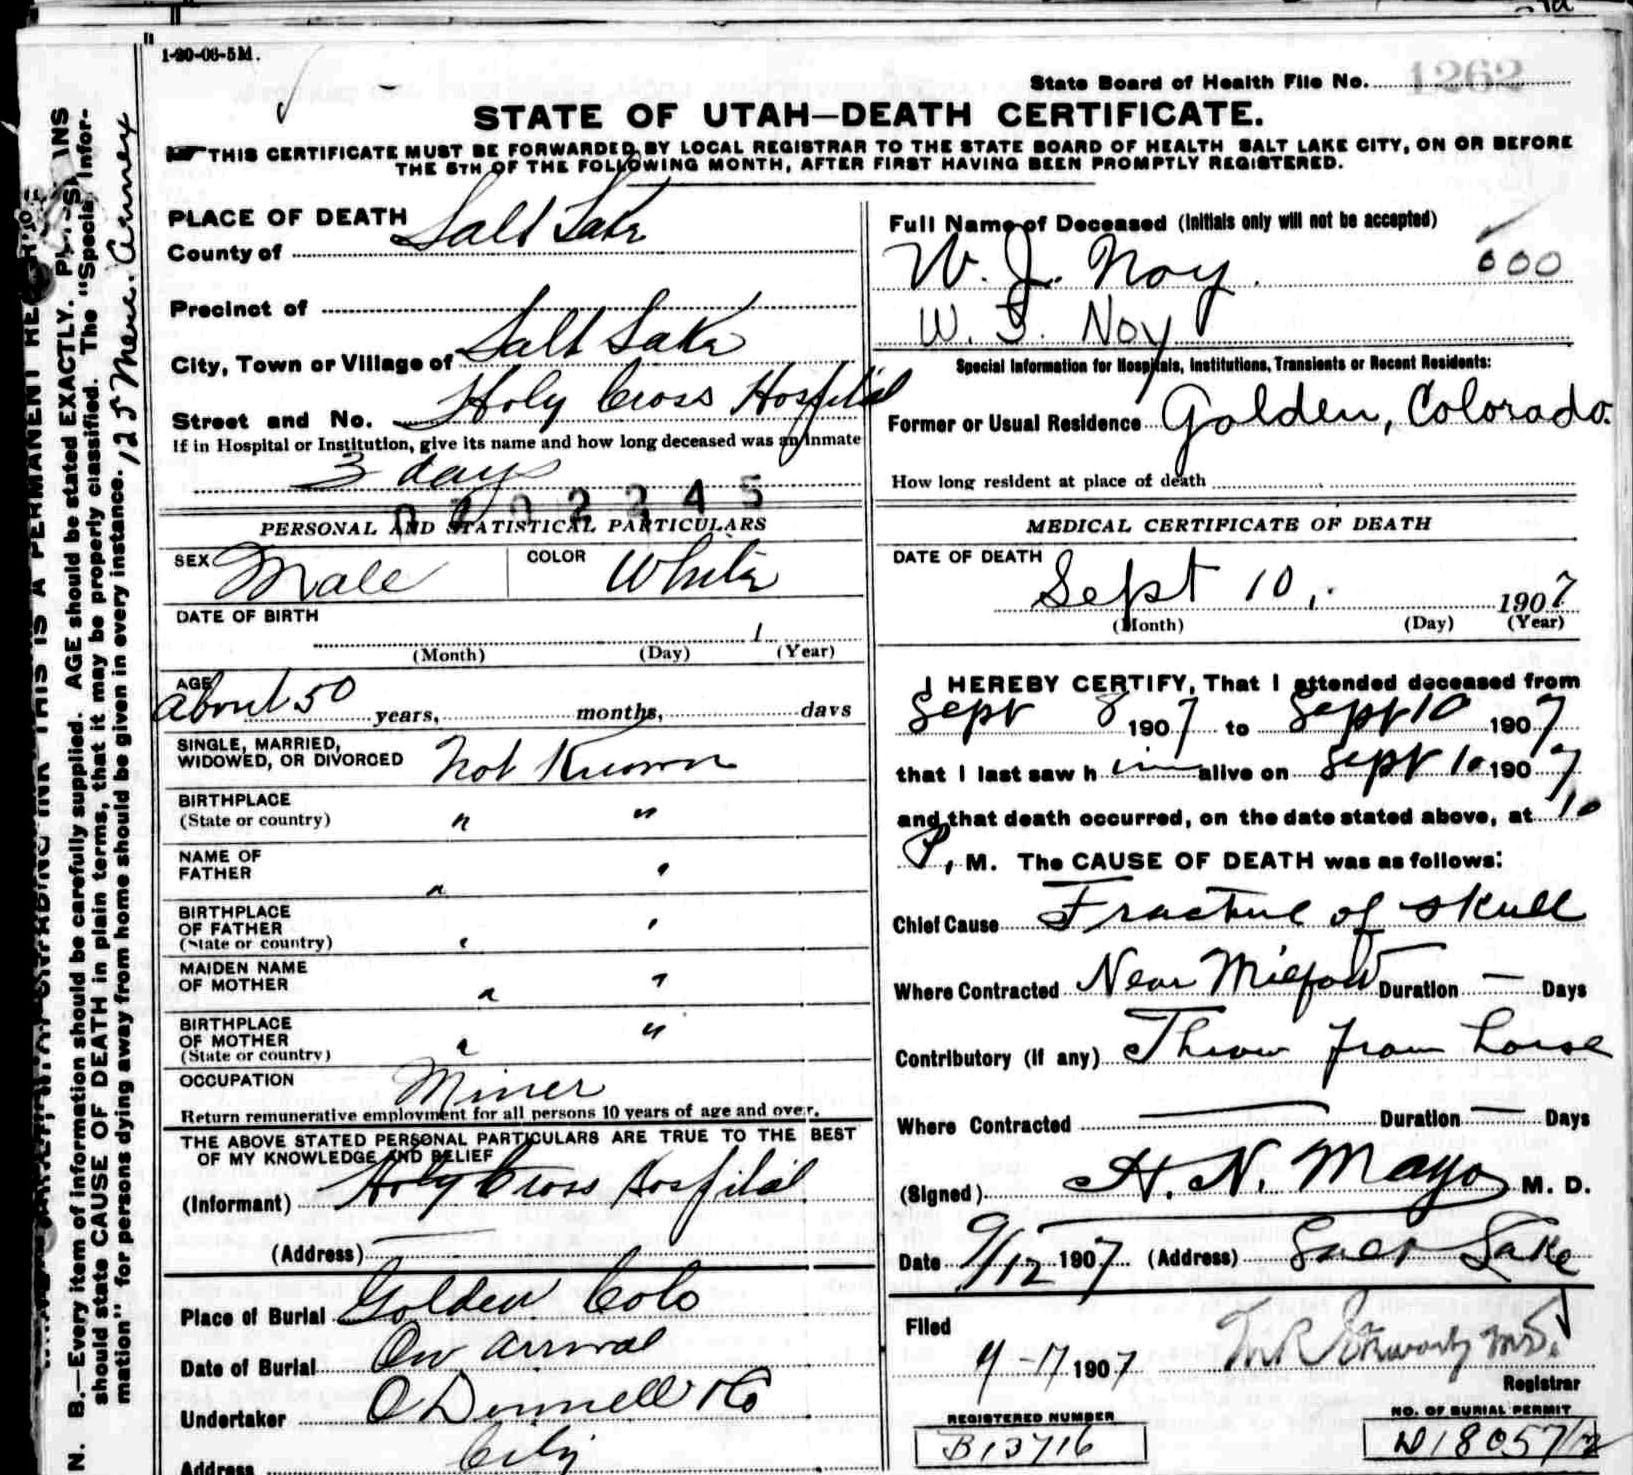 1-20-06-5M.
State Board of Health File No. 1262
STATE OF UTAH—DEATH CERTIFICATE.
THIS CERTIFICATE MUST BE FORWARDED BY LOCAL REGISTRAR TO THE STATE BOARD OF HEALTH SALT LAKE CITY, ON OR BEFORE
THE 5TH OF THE FOLLOWING MONTH, AFTER FIRST HAVING BEEN PROMPTLY REGISTERED.
PLACE OF DEATH
County of Salt Lake
Precinct of
City, Town or Village of Salt Lake
Street and No. Holy Cross Hospital
If in Hospital or Institution, give its name and how long deceased was an inmate
3 days
PERSONAL AND STATISTICAL PARTICULARS
SEX Male COLOR White
DATE OF BIRTH
1
(Month) (Day) (Year)
AGE
about 50 years, months, days
SINGLE, MARRIED,
WIDOWED, OR DIVORCED Not Known
BIRTHPLACE
(State or country) " "
NAME OF
FATHER " "
BIRTHPLACE
OF FATHER
(State or country) " "
MAIDEN NAME
OF MOTHER " "
BIRTHPLACE
OF MOTHER
(State or country) " "
OCCUPATION Miner
Return remunerative employment for all persons 10 years of age and over.
THE ABOVE STATED PERSONAL PARTICULARS ARE TRUE TO THE BEST
OF MY KNOWLEDGE AND BELIEF
(Informant) Holy Cross Hospital
(Address)
Place of Burial Golden Colo
Date of Burial On arrival
Undertaker O'Donnell & Co
Address City
Full Name of Deceased (Initials only will not be accepted)
W. J. Noy 600
W. J. Noy
Special Information for Hospitals, Institutions, Transients or Recent Residents:
Former or Usual Residence Golden, Colorado.
How long resident at place of death
MEDICAL CERTIFICATE OF DEATH
DATE OF DEATH
Sept 10, 1907
(Month) (Day) (Year)
I HEREBY CERTIFY, That I attended deceased from
Sept 8 1907 to Sept 10 1907
that I last saw him alive on Sept 10 1907
and that death occurred, on the date stated above, at 10
P. M. The CAUSE OF DEATH was as follows:
Chief Cause Fracture of skull
Where Contracted Near Milford Duration — Days
Contributory (if any) Throw from horse
Where Contracted — Duration — Days
(Signed) H. N. Mayo M. D.
Date 9/12 1907 (Address) Salt Lake
Filed
9-17 1907
Registrar
REGISTERED NUMBER
B13716
NO. OF BURIAL PERMIT
D18057
N. B.—Every item of information should be carefully supplied. AGE should be stated EXACTLY.
should state CAUSE OF DEATH in plain terms, that it may be properly classified. The "Special Infor-
mation" for persons dying away from home should be given in every instance.